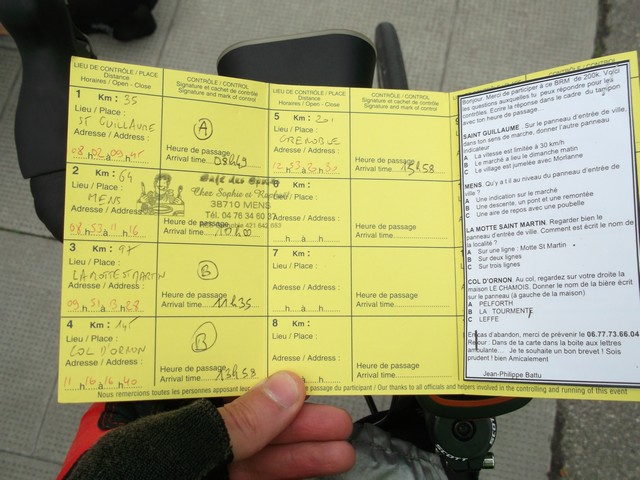 LIEU DE CONTRÔLE / PLACE
Distance
Horaires / Open - Close
CONTRÔLE / CONTROL
Signature et cachet de contrôle
Signature and mark of control
1 Km : 35
Lieu / Place :
ST GUILLAUME
Adresse / Address :
08 h 02 à 09 h 45
A
Heure de passage
Arrival time 08h49
2 Km : 64
Lieu / Place :
MENS
Adresse / Address :
08 h 53 à 11 h 16
Chez Sophie et Raphaël
38710 MENS
Tél. 04 76 34 60
Arrival time 10h00
3 Km : 97
Lieu / Place :
LA MOTTE ST MARTIN
Adresse / Address :
09 h 51 à 13 h 28
B
Heure de passage
Arrival time 11h35
4 Km : 145
Lieu / Place :
COL D'ORNON
Adresse / Address :
11 h 16 à 16 h 40
B
Heure de passage
Arrival time 13h58
LIEU DE CONTRÔLE / PLACE
Distance
Horaires / Open - Close
CONTRÔLE / CONTROL
Signature et cachet de contrôle
Signature and mark of control
5 Km : 201
Lieu / Place :
GRENOBLE
Adresse / Address :
12 h 53 à 20 h 30
Heure de passage
Arrival time 15h58
6 Km :
Lieu / Place :
Adresse / Address :
h à h
7 Km :
Lieu / Place :
Adresse / Address :
h à h
Heure de passage
Arrival time
8 Km :
Lieu / Place :
Adresse / Address :
à h
Heure de passage
Arrival time
Nous remercions toutes les personnes apposant leur
passage du participant / Our thanks to all officials and helpers involved in the controlling and running of this event
Bonjour. Merci de participer à ce BRM de 200k. Voici
les questions auxquelles tu peux répondre pour les
contrôles. Ecrire la réponse dans le cadre du tampon
avec ton heure de passage.
SAINT GUILLAUME Sur le panneau d'entrée de ville,
dans ton sens de marche, donner l'autre panneau
indicateur
A La vitesse est limitée à 30 km/h
B Le marché a lieu le dimanche matin
C Le village est jumelée avec Morianne
MENS. Qu'y a t il au niveau du panneau d'entrée de
ville ?
A Une indication sur le marché
B Une descente, un pont et une remontée
C Une aire de repos avec une poubelle
LA MOTTE SAINT MARTIN. Regarder bien le
panneau d'entrée de ville. Comment est écrit le nom de
la localité ?
A Sur une ligne : Motte St Martin
B Sur deux lignes
C Sur trois lignes
COL D'ORNON Au col, regardez sur votre droite la
maison LE CHAMOIS. Donner le nom de la bière écrit
sur le panneau (à gauche de la maison)
A PELFORTH
B LA TOURMENTE
C LEFFE
En cas d'abandon, merci de prévenir le 06.77.73.66.04
Retour : Dans de ta carte dans la boite aux lettres
Je te souhaite un bon brevet ! Sois
prudent ! bien Amicalement
Jean-Philippe Battu
SCOTT